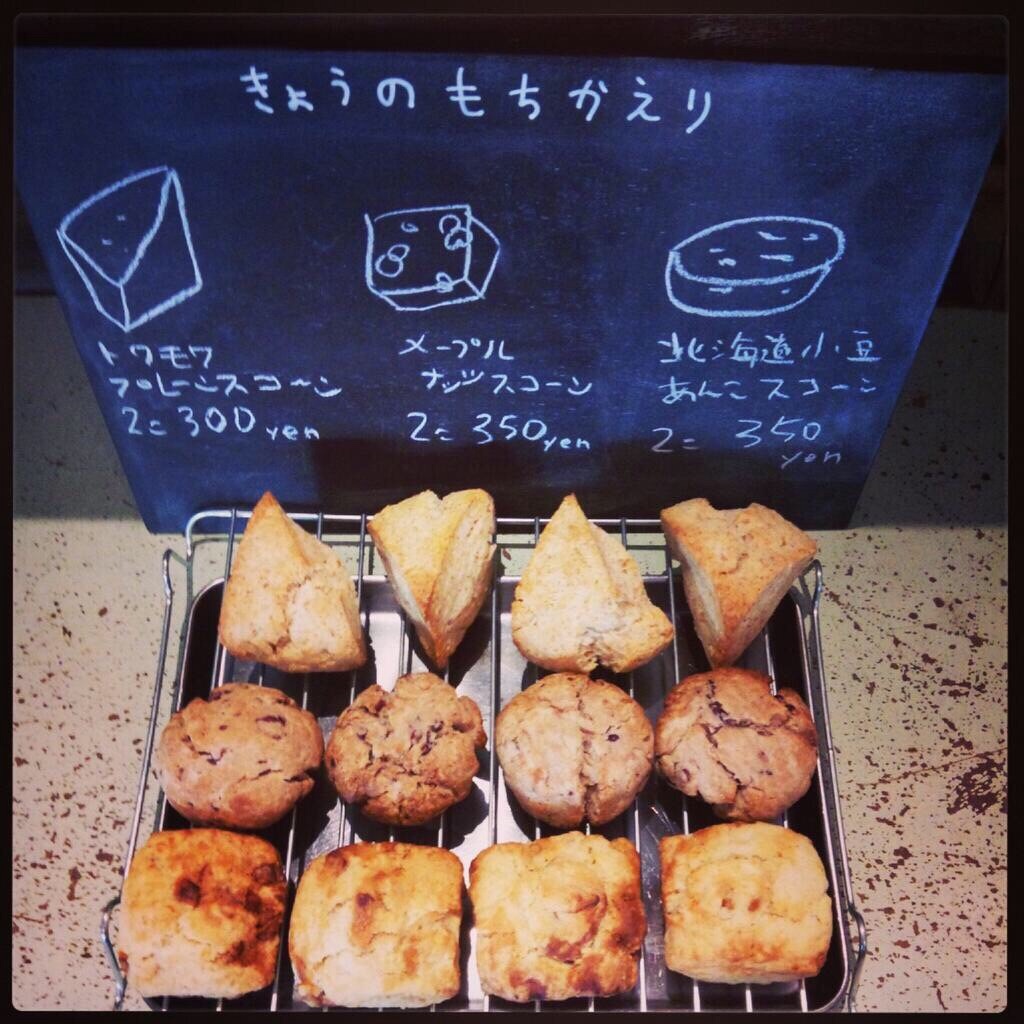 きょうのもちかえり
トワモワ
プレーンスコーン
2コ 300yen
メープル
ナッツスコーン
2コ 350yen
北海道小豆
あんこスコーン
2コ 350
yen